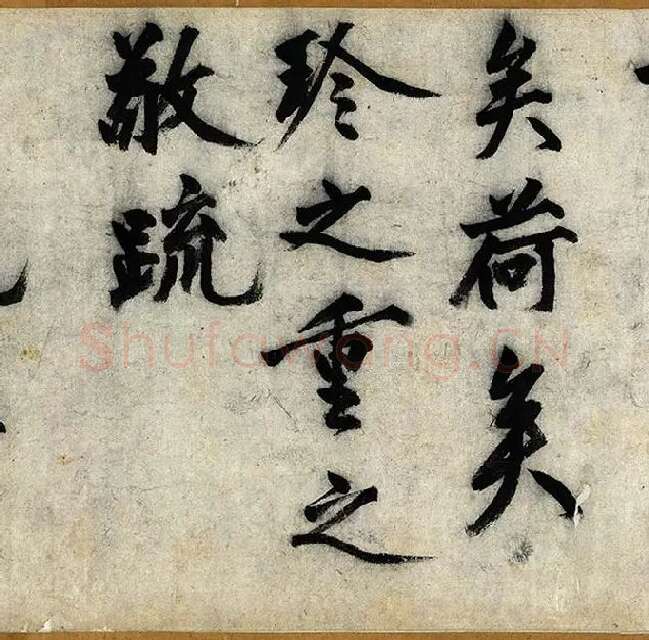 矣荷矣
珍之重之
敬疏
Shufawang.CN